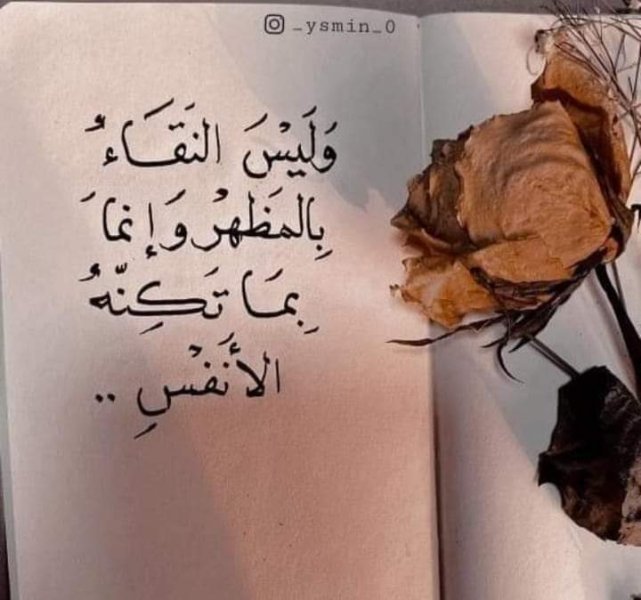 _ysmin_0
وَلَيْسَ النَقَاءُ
بِالمَظهرْ وَإنمَا
بِمَا تَكِنّهُ
الأَنَفْسِ ..